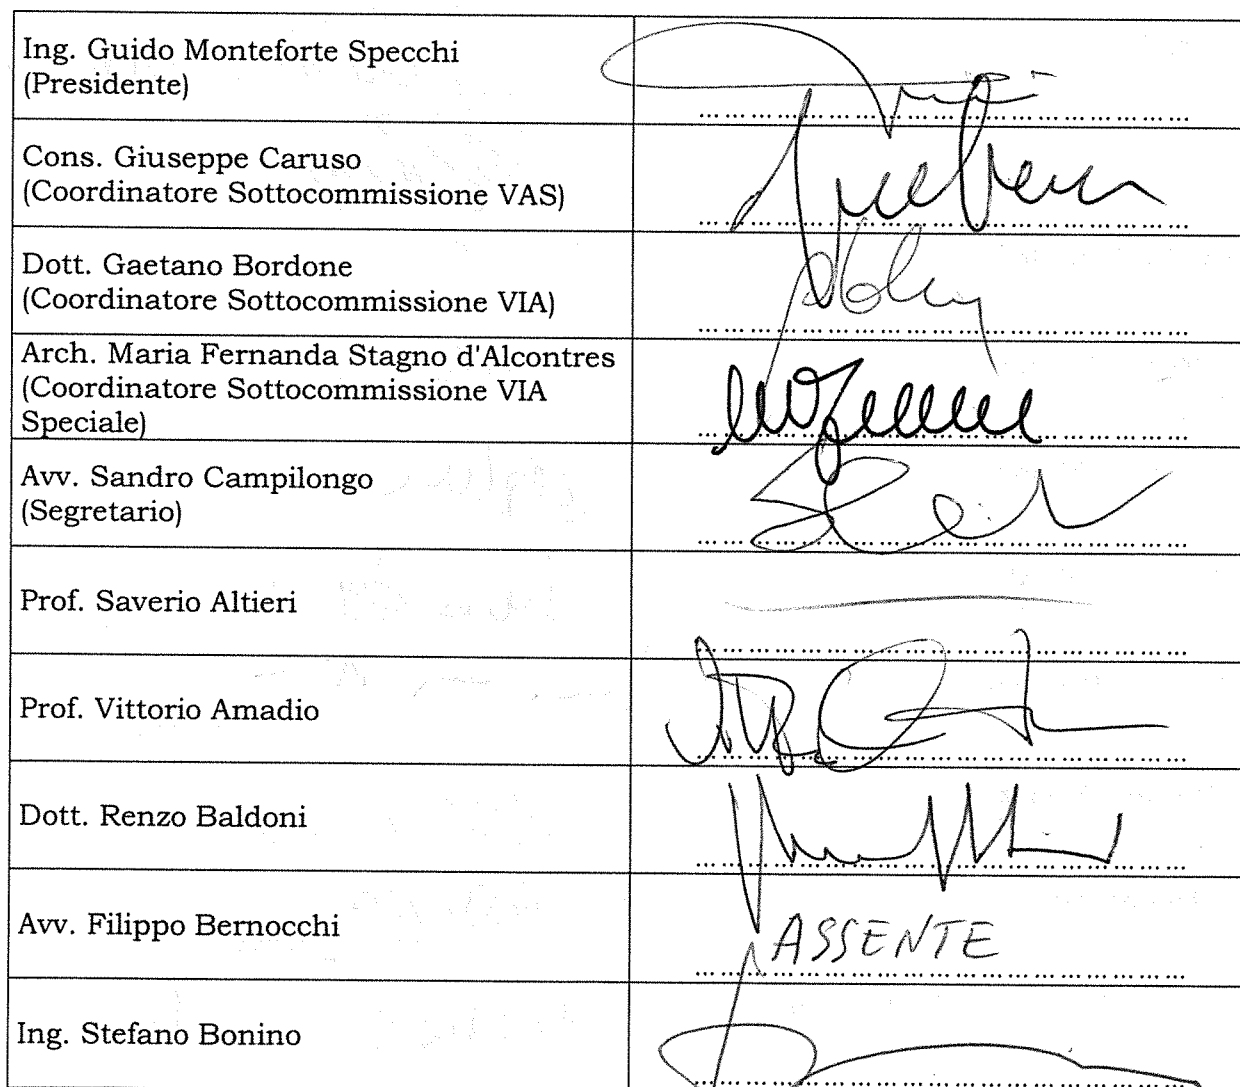 Ing. Guido Monteforte Specchi
(Presidente)
Cons. Giuseppe Caruso
(Coordinatore Sottocommissione VAS)
Dott. Gaetano Bordone
(Coordinatore Sottocommissione VIA)
Arch. Maria Fernanda Stagno d'Alcontres
(Coordinatore Sottocommissione VIA
Speciale)
Avv. Sandro Campilongo
(Segretario)
Prof. Saverio Altieri
Prof. Vittorio Amadio
Dott. Renzo Baldoni
Avv. Filippo Bernocchi
ASSENTE
Ing. Stefano Bonino